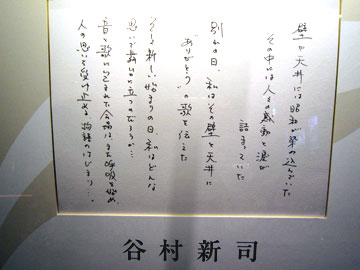 壁や天井には昭和が染み込んでいた
その中には人々の感動と涙が
詰まっていた
別れの日、私はその壁と天井に
"ありがとう"の歌を伝えた
そして新しい始まりの日、私はどんな
思いで舞台に立つのだろうか…
音と歌に包まれた会場はまた呼吸を始め
人の思いを受け止める物語のはじまり…。
谷村新司